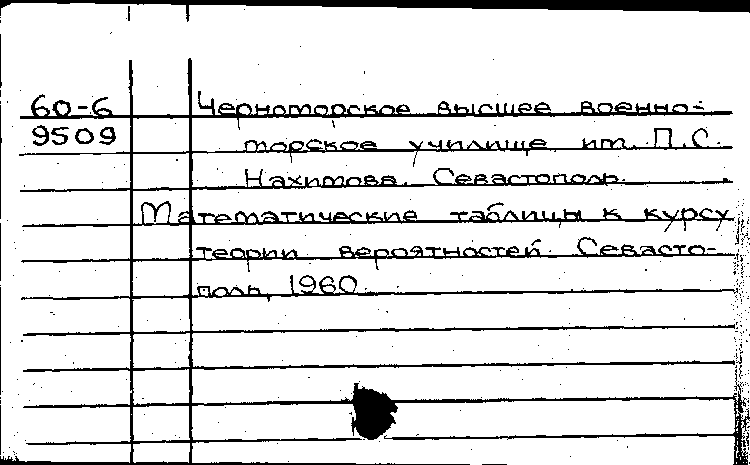 60-6 Черноморское высшее военно-
9509 морское училище им. П.С.
Нахимова. Севастополь.
Математические таблицы к курсу
теории вероятностей. Севасто-
поль, 1960.